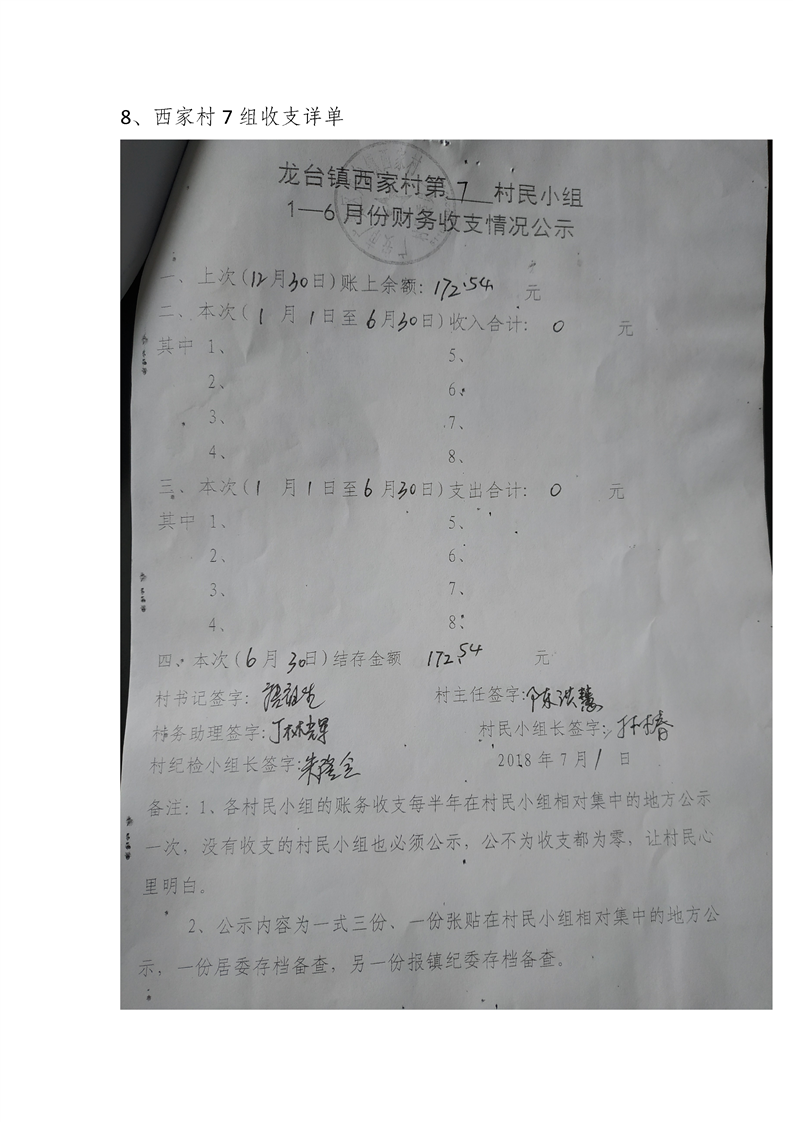 8、西家村7组收支详单
龙台镇西家村第 7 村民小组
1—6月份财务收支情况公示
一、上次(12月30日)账上余额: 172.54 元
二、本次( 1 月 1日至 6月30日)收入合计: 0 元
其中 1、 5、
2、 6、
3、 7、
4、 8、
三、本次(1 月 1日至6月30日)支出合计: 0 元
其中 1、 5、
2、 6、
3、 7、
4、 8、
四、本次(6月 30日)结存金额 172.54 元
村书记签字: 村主任签字:陈洪慧
村务助理签字:丁树辉 村民小组长签字:
村纪检小组长签字:朱隆全 2018 年 7 月 1 日
备注:1、各村民小组的账务收支每半年在村民小组相对集中的地方公示
一次,没有收支的村民小组也必须公示,公不为收支都为零,让村民心
里明白。
2、公示内容为一式三份、一份张贴在村民小组相对集中的地方公
示,一份居委存档备查,另一份报镇纪委存档备查。